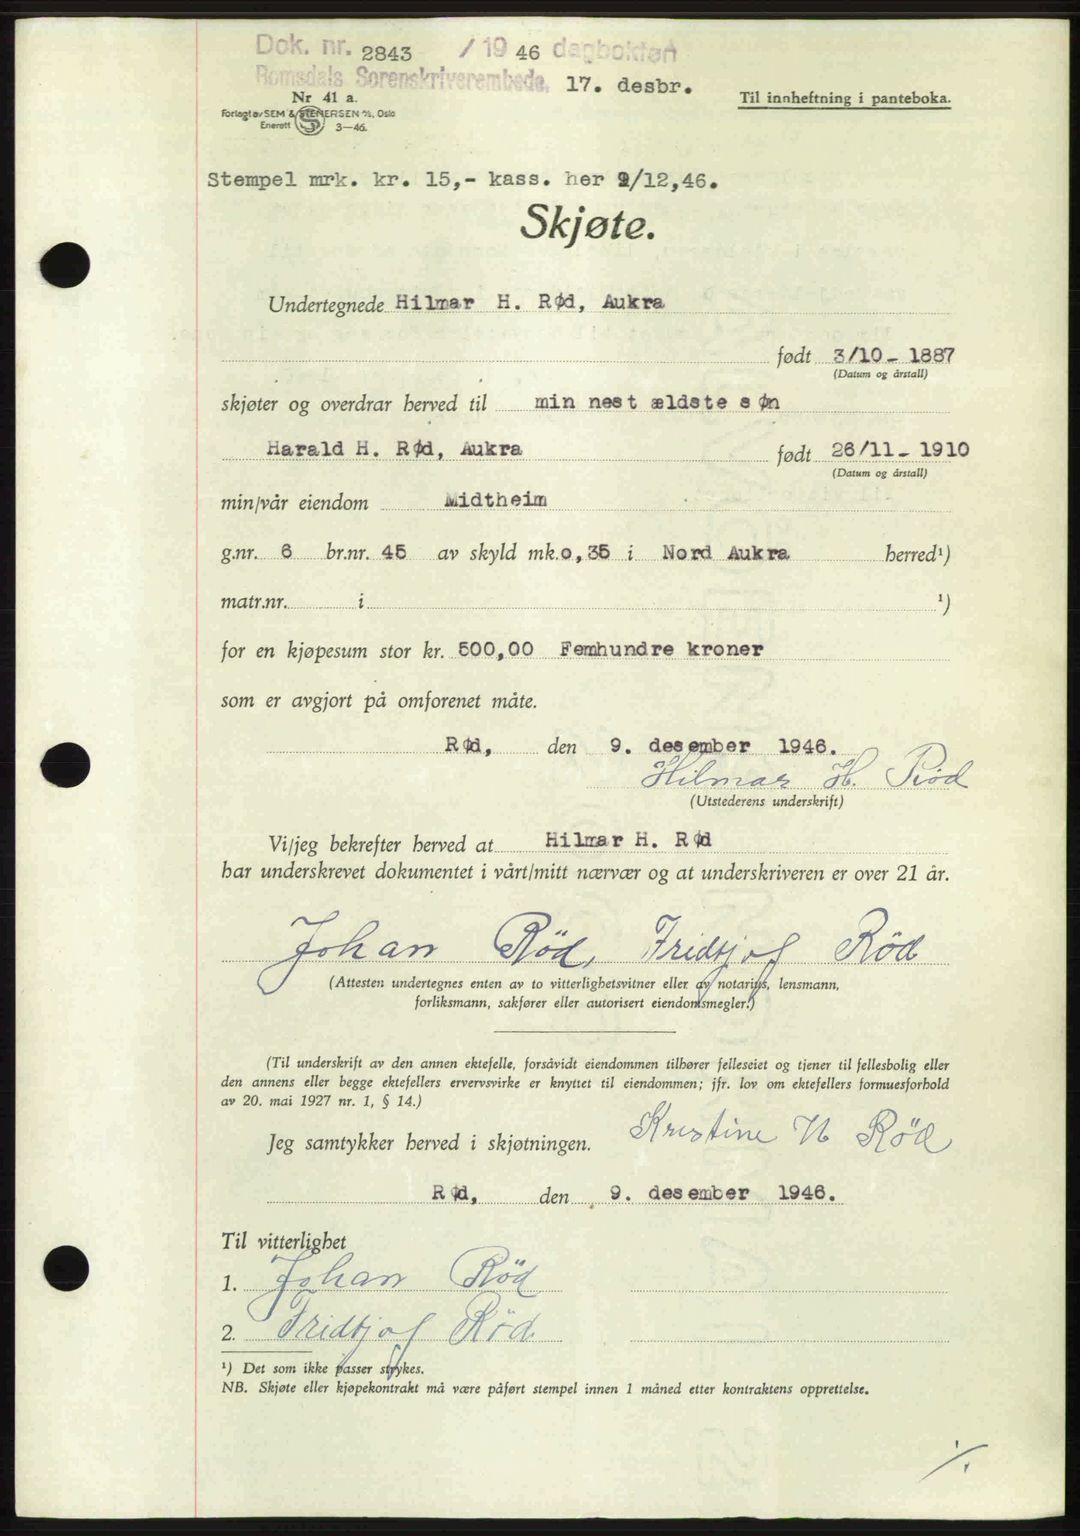 Dok. nr. 2843 /19 46 dagbokført
Romsdals Sorenskriverembede, 17. desbr.
Nr 41 a.
Til innheftning i panteboka.
Forlagt av SEM & STENERSEN A/S, Oslo
Enerett 3—46.
Stempel mrk. kr. 15,- kass. her 9/12,46.
Skjøte.
Undertegnede Hilmar H. Rød, Aukra
født 3/10 - 1887
(Datum og årstall)
skjøter og overdrar herved til min nest ældste søn
Harald H. Rød, Aukra født 26/11 - 1910
(Datum og årstall)
min/vår eiendom Midtheim
g.nr. 6 br.nr. 45 av skyld mk. 0,35 i Nord Aukra herred¹)
matr.nr. i ¹)
for en kjøpesum stor kr. 500,00 Femhundre kroner
som er avgjort på omforenet måte.
Rød, den 9. desember 1946.
Hilmar H. Rød
(Utstederens underskrift)
Vi/jeg bekrefter herved at Hilmar H. Rød
har underskrevet dokumentet i vårt/mitt nærvær og at underskriveren er over 21 år.
Johan Rød, Fridtjof Rød
(Attesten undertegnes enten av to vitterlighetsvitner eller av notarius, lensmann,
forliksmann, sakfører eller autorisert eiendomsmegler.)
(Til underskrift av den annen ektefelle, forsåvidt eiendommen tilhører felleseiet og tjener til fellesbolig eller
den annens eller begge ektefellers ervervsvirke er knyttet til eiendommen; jfr. lov om ektefellers formuesforhold
av 20. mai 1927 nr. 1, § 14.)
Jeg samtykker herved i skjøtningen. Kristine H Rød
Rød, den 9. desember 1946.
Til vitterlighet
1. Johan Rød
2. Fridtjof Rød
¹) Det som ikke passer strykes.
NB. Skjøte eller kjøpekontrakt må være påført stempel innen 1 måned etter kontraktens opprettelse.